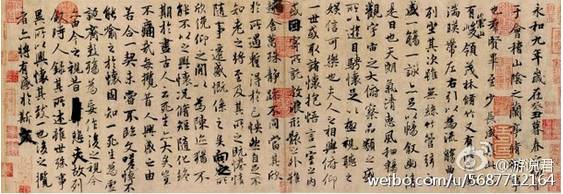 永和九年歲在癸丑暮春之初會
于會稽山陰之蘭亭脩稧事
也群賢畢至少長咸集此地
有崇山峻領茂林脩竹又有清流激
湍暎帶左右引以為流觴曲水
列坐其次雖無絲竹管弦之
盛一觴一詠亦足以暢敘幽情
是日也天朗氣清惠風和暢仰
觀宇宙之大俯察品類之盛
所以遊目騁懷足以極視聽之
娛信可樂也夫人之相與俯仰
一世或取諸懷抱悟言一室之內
或因寄所託放浪形骸之外雖
趣舍萬殊靜躁不同當其欣
於所遇暫得於己快然自足不
知老之將至及其所之既惓情
隨事遷感慨係之矣向之所
欣俛仰之閒以為陳迹猶不
能不以之興懷況脩短隨化終
期於盡古人云死生亦大矣豈
不痛哉每攬昔人興感之由
若合一契未嘗不臨文嗟悼不
能喻之於懷固知一死生為虛
誕齊彭殤為妄作後之視今
亦由今之視昔悲夫故列
敘時人錄其所述雖世殊事
異所以興懷其致一也後之攬
者亦將有感於斯文
weibo.com/u/5687712164